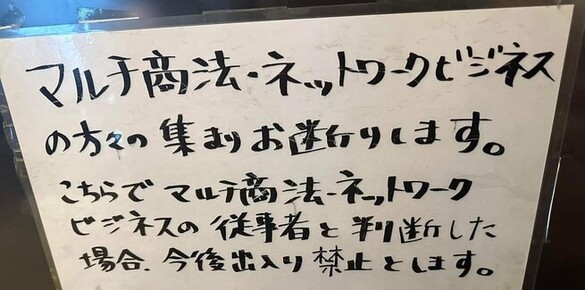 マルチ商法・ネットワークビジネス
の方々の集まりお断りします。
こちらでマルチ商法・ネットワーク
ビジネスの従事者と判断した
場合、今後出入り禁止とします。